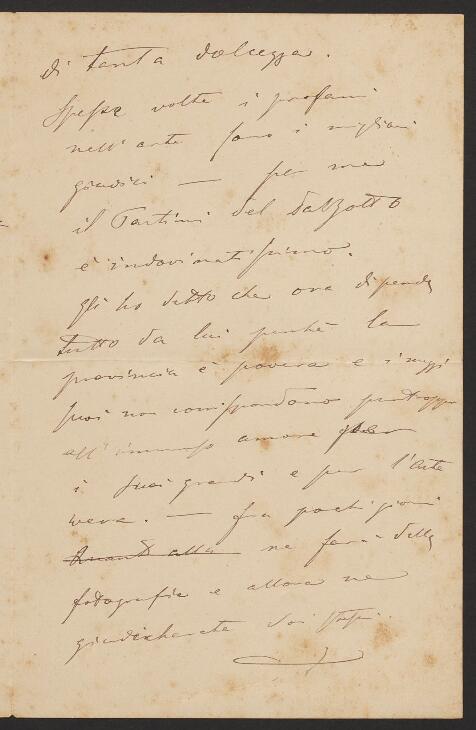 di tanta dolcezza.
Spesse volte i profani
nell'arte sono i migliori
giudici — per me
il Tartini del Dalzotto
è indovinatissimo.
Gli ho detto che ora dipende
tutto da lui perchè la
provincia è povera e i mezzi
suoi non corrispondono purtroppo
all'immenso amore per
i suoi grandi e per l'arte
vera. — fra pochi giorni
ne farà delle
fotografie e allora ne
giudicherete voi stessi.